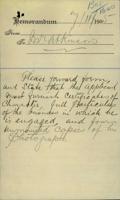 Memorandum
From
To Mr Atkinson
Please forward form
and state that the applicant
must furnish Certificates of
Character full particulars
of the business in which he
is engaged, and
copies of his
Photograph